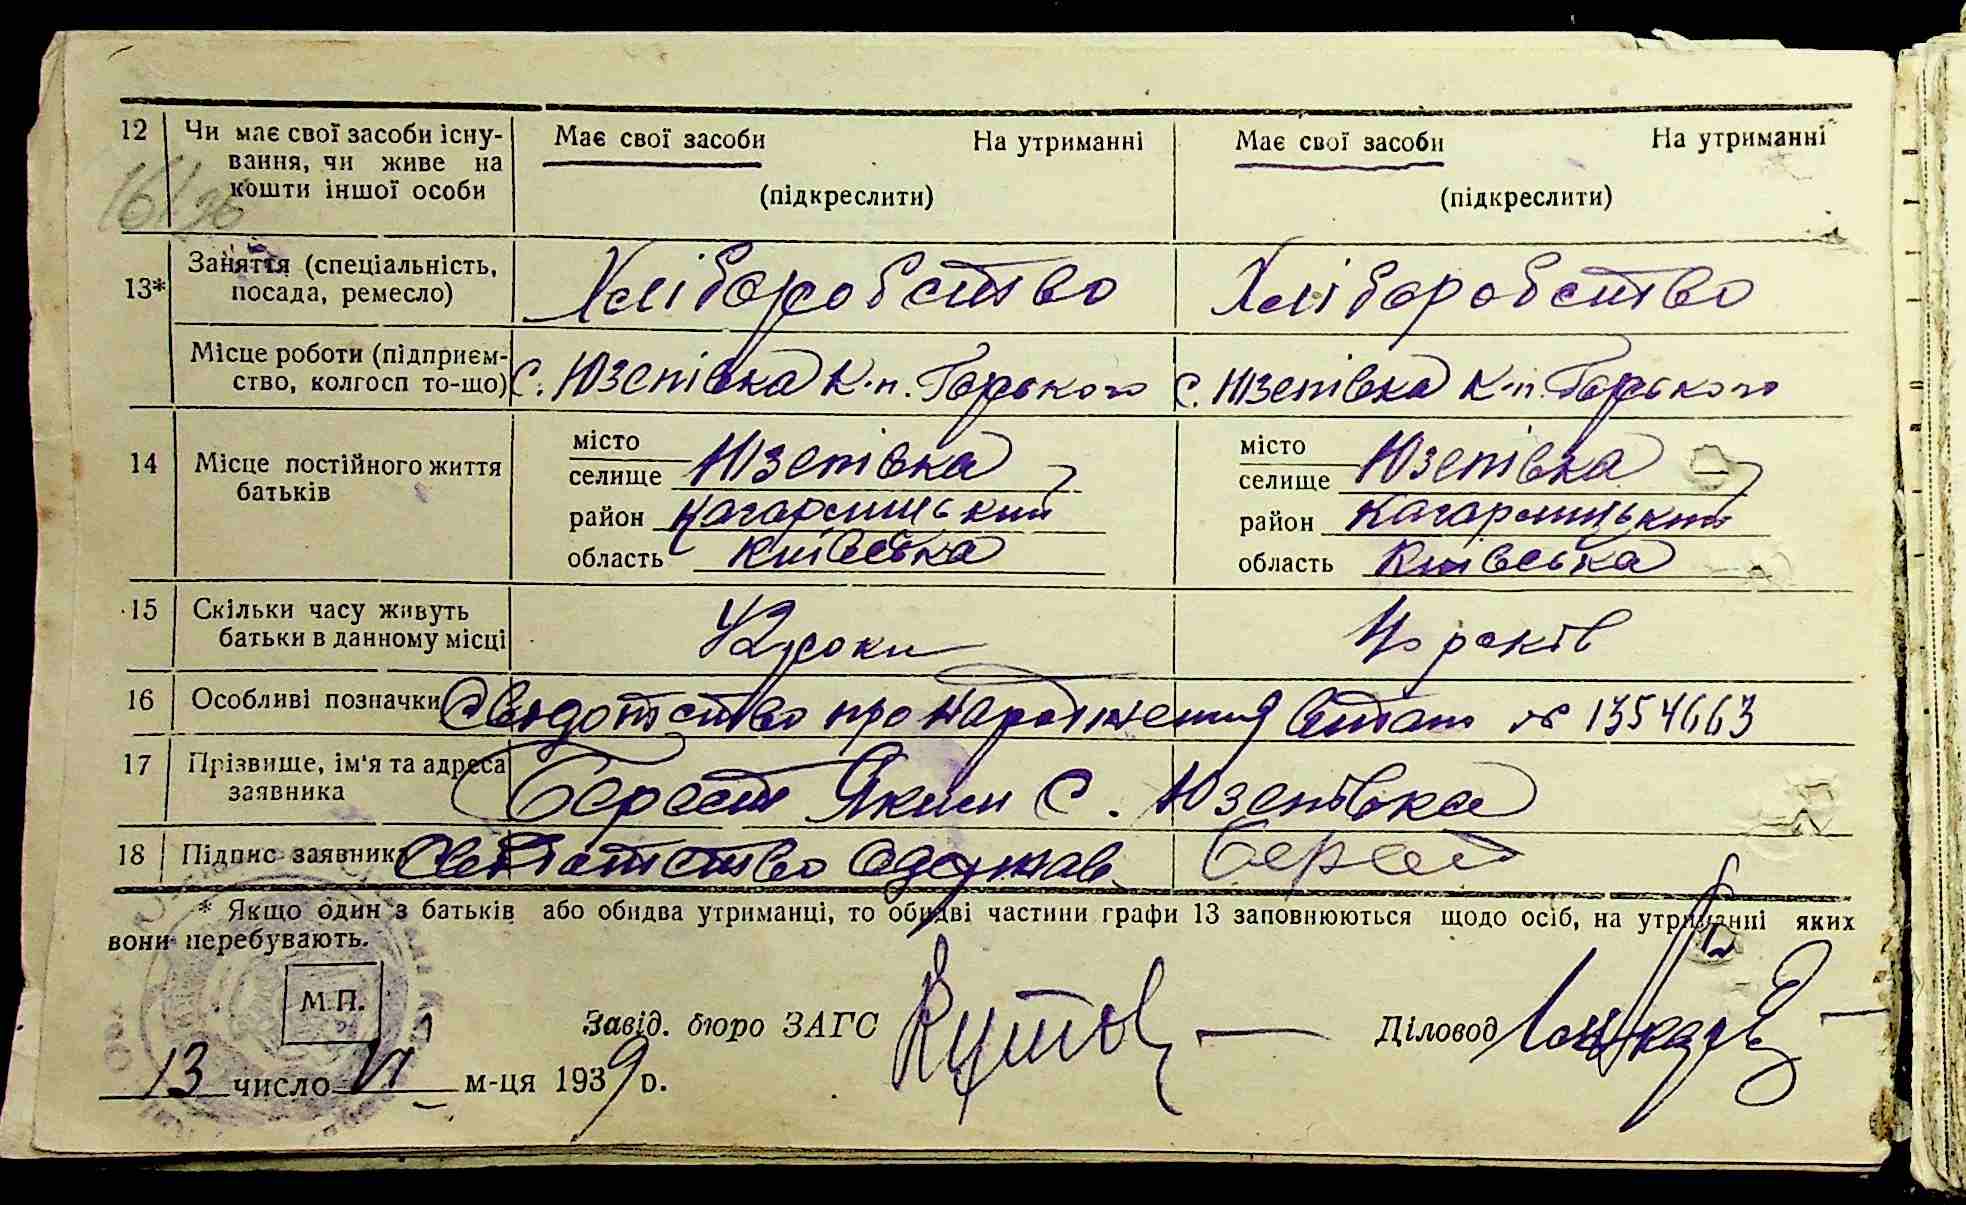 12 Чи має свої засоби існу-
вання, чи живе на
кошти іншої особи
Має свої засоби На утриманні
(підкреслити)
Має свої засоби На утриманні
(підкреслити)
13* Заняття (спеціальність,
посада, ремесло)
Хліборобство
Хліборобство
Місце роботи (підприєм-
ство, колгосп то-що)
с. Юзепівка к-п. Горького
с. Юзепівка к-п. Горького
14 Місце постійного життя
батьків
місто
селище Юзепівка
район Кагарлицький
область Київська
місто
селище Юзепівка
район Кагарлицький
область Київська
15 Скільки часу живуть
батьки в данному місці
42 роки
40 років
16 Особливі позначки Свидотство про народження № 1354663
17 Прізвище, ім'я та адреса
заявника
Берест Яким С. Юзепівка
18 Підпис заявника одержав Берест
* Якщо один з батьків або обидва утриманці, то обидві частини графи 13 заповнюються щодо осіб, на утриманні яких
вони перебувають.
М.П.
Завід. бюро ЗАГС
Діловод
13 число VI м-ця 1939 р.